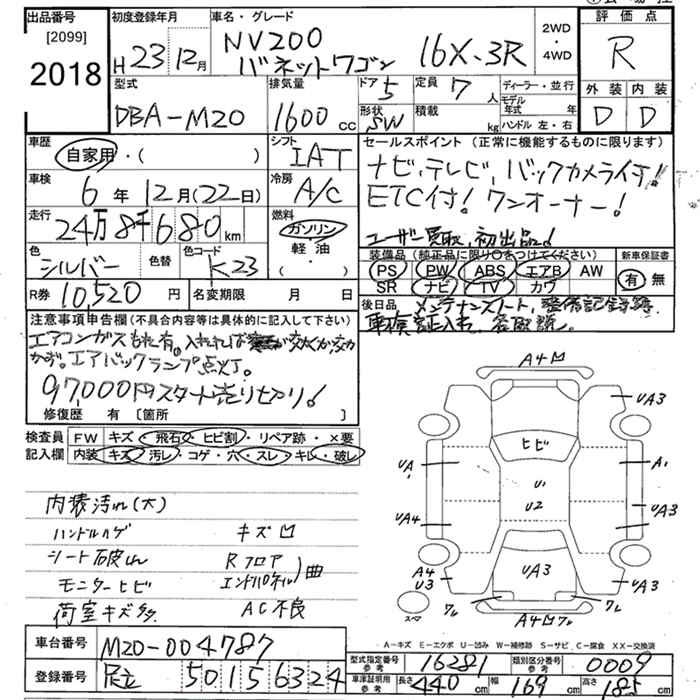 出品番号
[2099]
2018
初度登録年月
H23年12月
車名・グレード
NV200
バネットワゴン 16X-3R
2WD
・
4WD
評価点
R
外装 内装
D D
型式
DBA-M20
排気量
1600 CC
ドア 5
形状 SW
定員 7 人
積載 kg
ディーラー・並行
モデル年式 年
ハンドル 左・右
車歴
自家用・( )
シフト
IAT
車検
6年12月(22日)
冷房
A/C
走行
24万8千680km
燃料
ガソリン
軽・油
・( )
色
シルバー
色替
色コード
K23
R券 10,520 円
名変期限 月 日
セールスポイント (正常に機能するものに限ります)
ナビ、テレビ、バックカメラ付!
ETC付! ワンオーナー!
ユーザー買取、初出品!
装備品(純正品に限り○をつけてください)
PS PW ABS エアB AW
SR ナビ TV カワ
新車保証書
有 無
後日品 メンテナンスノート、整備記録簿、
車検証入れ、各取説。
注意事項申告欄 (不具合内容等は具体的に記入して下さい)
エアコンガスもれ有。入れれば
かず。エアバックランプ点灯。
97,000円スタート売り切り!
修復歴 有 [箇所 ]
検査員 FW キズ・飛石・ヒビ割・リペア跡・×要
記入欄 内装 キズ・汚レ・コゲ・穴・スレ・キレ・破レ
内装汚れ(大)
ハンドルハゲ キズ凹
シート破れ Rフロア
モニターヒビ エンドパネル)曲
荷室キズ多 AC不良
A4凹
UA3
ヒビ
UA
A1
U1
U2
UA4
UA3
A4
U3
UA3
UA3
スペア
ワレ
ワレ
A4凹ワレ
A-キズ E-エクボ U-凹み W-補修跡 S-サビ C-腐食 XX-交換済
車台番号 M20-004787
登録番号 足立 501 す 6324
型式指定番号 参考 16281
類別区分番号 参考 0009
車庫証明用 参考 長さ 440 cm 幅 169 cm 高さ 185 cm